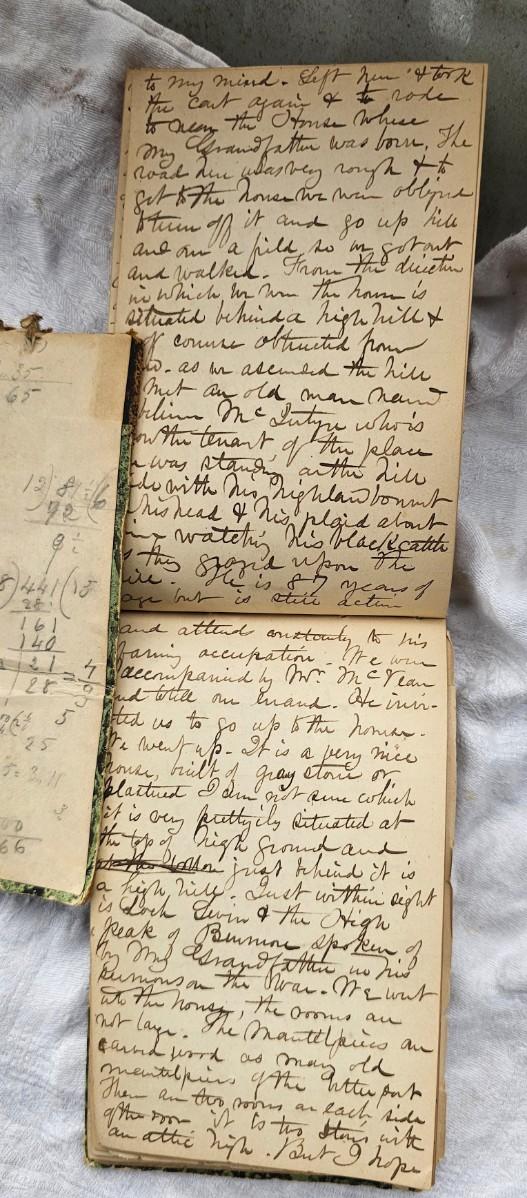 to my mind. Left him & took
the cart again & to rode
to near the House where
My Grandfather was born. The
road here was very rough & to
get to the house we were obliged
to turn off it and go up hill
and over a field so we got out
and walked. From the direction
in which we were the house is
situated behind a high hill &
of course obstructed from
as we ascended the hill
met an old man named
Mc Intyre who is
now the tenant of the place
was standing on the hill
side with his highland bonnet
his head & his plaid about
watching his black cattle
they grazed upon the
He is 87 years of
age but is still active
and attends constantly to his
farming occupation. We were
accompanied by Mr. McVean
and told our errand. He invi-
ted us to go up to the house.
We went up. It is a very nice
house, built of gray stone or
plastered I am not sure which
it is very prettily situated at
the top of high ground and
just behind it is
a high hill. Just within sight
is Loch Levin & the High
Peak of Benmore spoken of
by My Grandfather in his
sermons on the War. We went
into the house, the rooms are
not large. The mantelpieces are
carved wood as many old
mantelpieces of the latter part
There are two rooms on each side
of the door it is two stories with
an attic high. But I hope
35
65
12)81(6
92
9
441(15
281
161
140
21
28
4
5
5
25
66